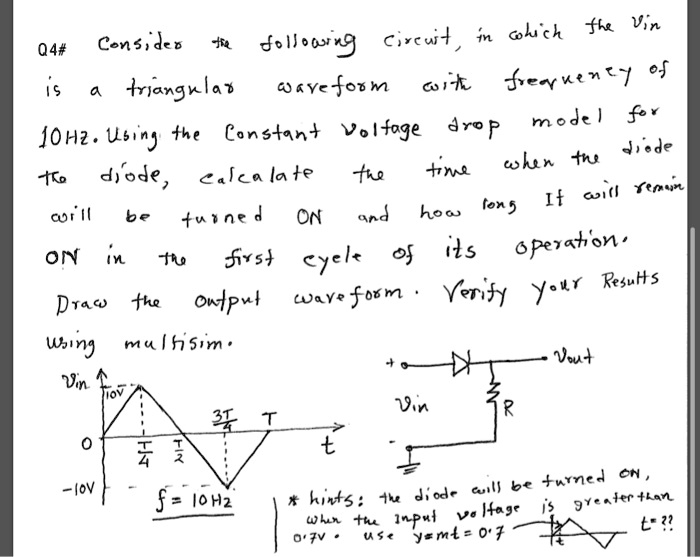 Q4# Consider the following circuit, in which the Vin
is a triangular waveform with frequency of
10HZ. Using the Constant Voltage drop model for
the diode, calculate the time when the diode
will be turned ON and how long It will remain
ON in the first cycle of its operation.
Draw the output waveform. Verify your Results
using multisim.
Vin
10V
0
-10V
T/4
T/2
3T/4
T
t
f = 10Hz
+
Vin
-
Vout
R
* hints: the diode will be turned ON,
when the input voltage is greater than
0.7V. use y=mt=0.7
t
t=??